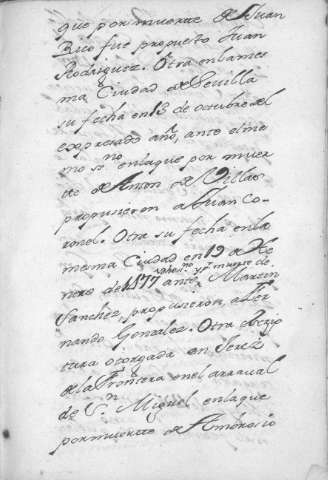 que por muerte de Juan
Rico fue propuesto Juan
Rodriguez. Otra en la mes
ma Ciudad de Sevilla
su fecha en 13 de octubre del
expresado año, ante el mes
mo ssno en la que por muer
te de Anton de Villa
propusieron a Juan Co
ronel. Otra su fecha en la
mesma Ciudad en 19 de He
nero de 1577 ante Martin
Sanchez propusieron a Fer
nando Gonzalez. Otra escrip
tura otorgada en Serez
de la Frontera en el arraval
de Sn Miguel en la que
por muerte de Ambrosio